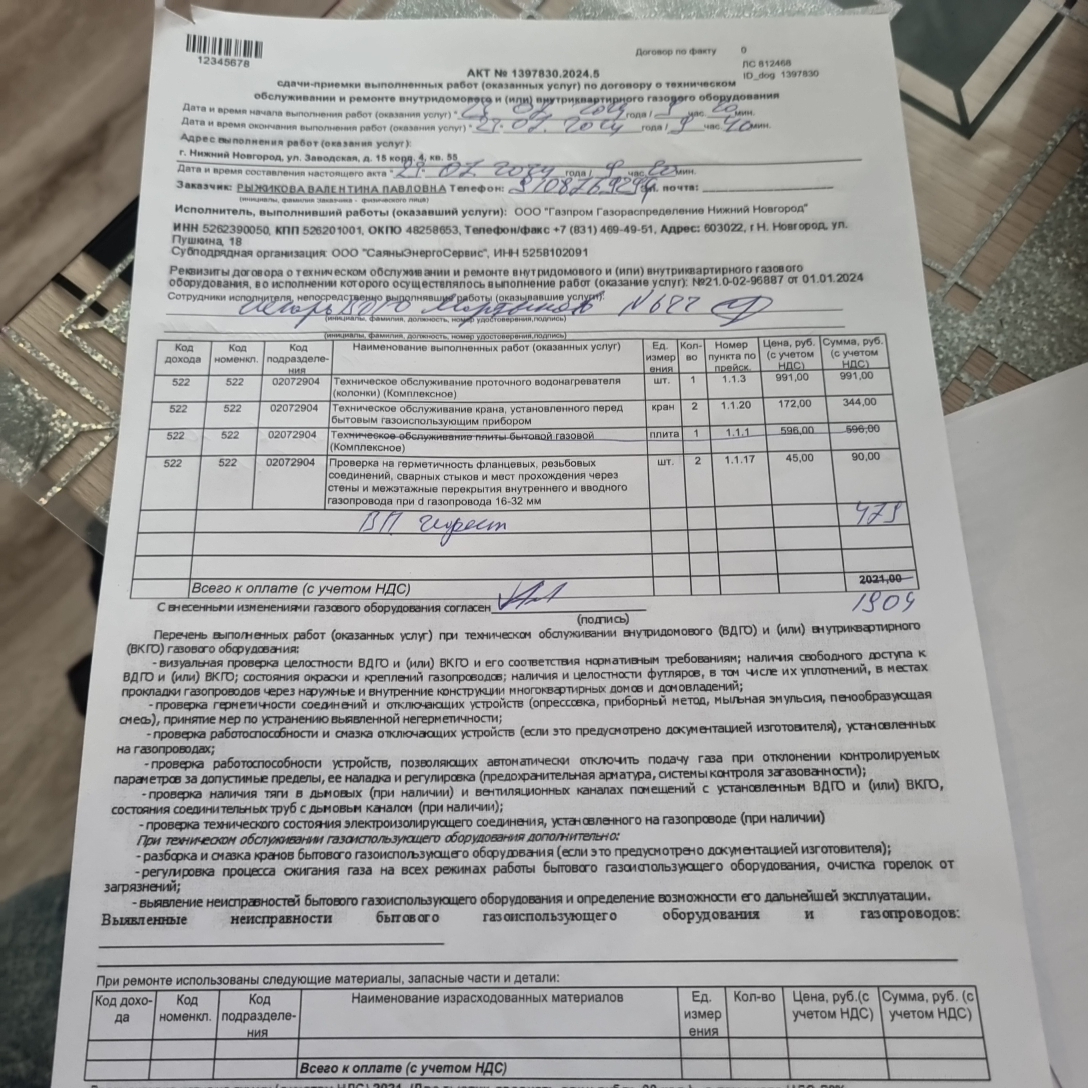 12345678
Договор по факту 0
ЛС 812468
ID_dog 1397830
АКТ № 1397830.2024.5
сдачи-приемки выполненных работ (оказанных услуг) по договору о техническом
обслуживании и ремонте внутридомового и (или) внутриквартирного газового оборудования
Дата и время начала выполнения работ (оказания услуг) " 07 2024 года / 9 час 20 мин.
Дата и время окончания выполнения работ (оказания услуг) " 07. 2024 года / 9 час 40 мин.
Адрес выполнения работ (оказания услуг):
г. Нижний Новгород, ул. Заводская, д. 15 корп. 4, кв. 55
Дата и время составления настоящего акта " 07 2024 года / 9 час мин.
Заказчик: РЫЖИКОВА ВАЛЕНТИНА ПАВЛОВНА Телефон: эл. почта:
(инициалы, фамилия Заказчика - физического лица)
Исполнитель, выполнивший работы (оказавший услуги): ООО "Газпром Газораспределение Нижний Новгород"
ИНН 5262390050, КПП 526201001, ОКПО 48258653, Телефон/факс +7 (831) 469-49-51, Адрес: 603022, г Н. Новгород, ул.
Пушкина, 18
Субподрядная организация: ООО "СаяныЭнергоСервис", ИНН 5258102091
Реквизиты договора о техническом обслуживании и ремонте внутридомового и (или) внутриквартирного газового
оборудования, во исполнении которого осуществлялось выполнение работ (оказание услуг): №21.0-02-96887 от 01.01.2024
Сотрудники исполнителя, непосредственно выполнявшие работы (оказавшие услуги):
(инициалы, фамилия, должность, номер удостоверения,подпись)
(инициалы, фамилия, должность, номер удостоверения,подпись)
Код дохода Код номенкл. Код подразделе-ния Наименование выполненных работ (оказанных услуг) Ед. измер ения Кол-во Номер пункта по прейск. Цена, руб. (с учетом НДС) Сумма, руб. (с учетом НДС)
522 522 02072904 Техническое обслуживание проточного водонагревателя шт. 1 1.1.3 991,00 991,00
(колонки) (Комплексное)
522 522 02072904 Техническое обслуживание крана, установленного перед кран 2 1.1.20 172,00 344,00
бытовым газоиспользующим прибором
522 522 02072904 Техническое обслуживание плиты бытовой газовой плита 1 1.1.1 596,00 596,00
(Комплексное)
522 522 02072904 Проверка на герметичность фланцевых, резьбовых шт. 2 1.1.17 45,00 90,00
соединений, сварных стыков и мест прохождения через
стены и межэтажные перекрытия внутреннего и вводного
газопровода при d газопровода 16-32 мм
ВП 479
Всего к оплате (с учетом НДС) 2021,00
1904
С внесенными изменениями газового оборудования согласен
(подпись)
Перечень выполненных работ (оказанных услуг) при техническом обслуживании внутридомового (ВДГО) и (или) внутриквартирного
(ВКГО) газового оборудования:
- визуальная проверка целостности ВДГО и (или) ВКГО и его соответствия нормативным требованиям; наличия свободного доступа к
ВДГО и (или) ВКГО; состояния окраски и креплений газопроводов; наличия и целостности футляров, в том числе их уплотнений, в местах
прокладки газопроводов через наружные и внутренние конструкции многоквартирных домов и домовладений;
- проверка герметичности соединений и отключающих устройств (опрессовка, приборный метод, мыльная эмульсия, пенообразующая
смесь), принятие мер по устранению выявленной негерметичности;
- проверка работоспособности и смазка отключающих устройств (если это предусмотрено документацией изготовителя), установленных
на газопроводах;
- проверка работоспособности устройств, позволяющих автоматически отключить подачу газа при отклонении контролируемых
параметров за допустимые пределы, ее наладка и регулировка (предохранительная арматура, системы контроля загазованности);
- проверка наличия тяги в дымовых (при наличии) и вентиляционных каналах помещений с установленным ВДГО и (или) ВКГО,
состояния соединительных труб с дымовым каналом (при наличии);
- проверка технического состояния электроизолирующего соединения, установленного на газопроводе (при наличии)
При техническом обслуживании газоиспользующего оборудования дополнительно:
- разборка и смазка кранов бытового газоиспользующего оборудования (если это предусмотрено документацией изготовителя);
- регулировка процесса сжигания газа на всех режимах работы бытового газоиспользующего оборудования, очистка горелок от
загрязнений;
- выявление неисправностей бытового газоиспользующего оборудования и определение возможности его дальнейшей эксплуатации.
Выявленные неисправности бытового газоиспользующего оборудования и газопроводов:
При ремонте использованы следующие материалы, запасные части и детали:
Код дохо-да Код номенкл. Код подразделе-ния Наименование израсходованных материалов Ед. измер ения Кол-во Цена, руб.(с учетом НДС) Сумма, руб. (с учетом НДС)
Всего к оплате (с учетом НДС)